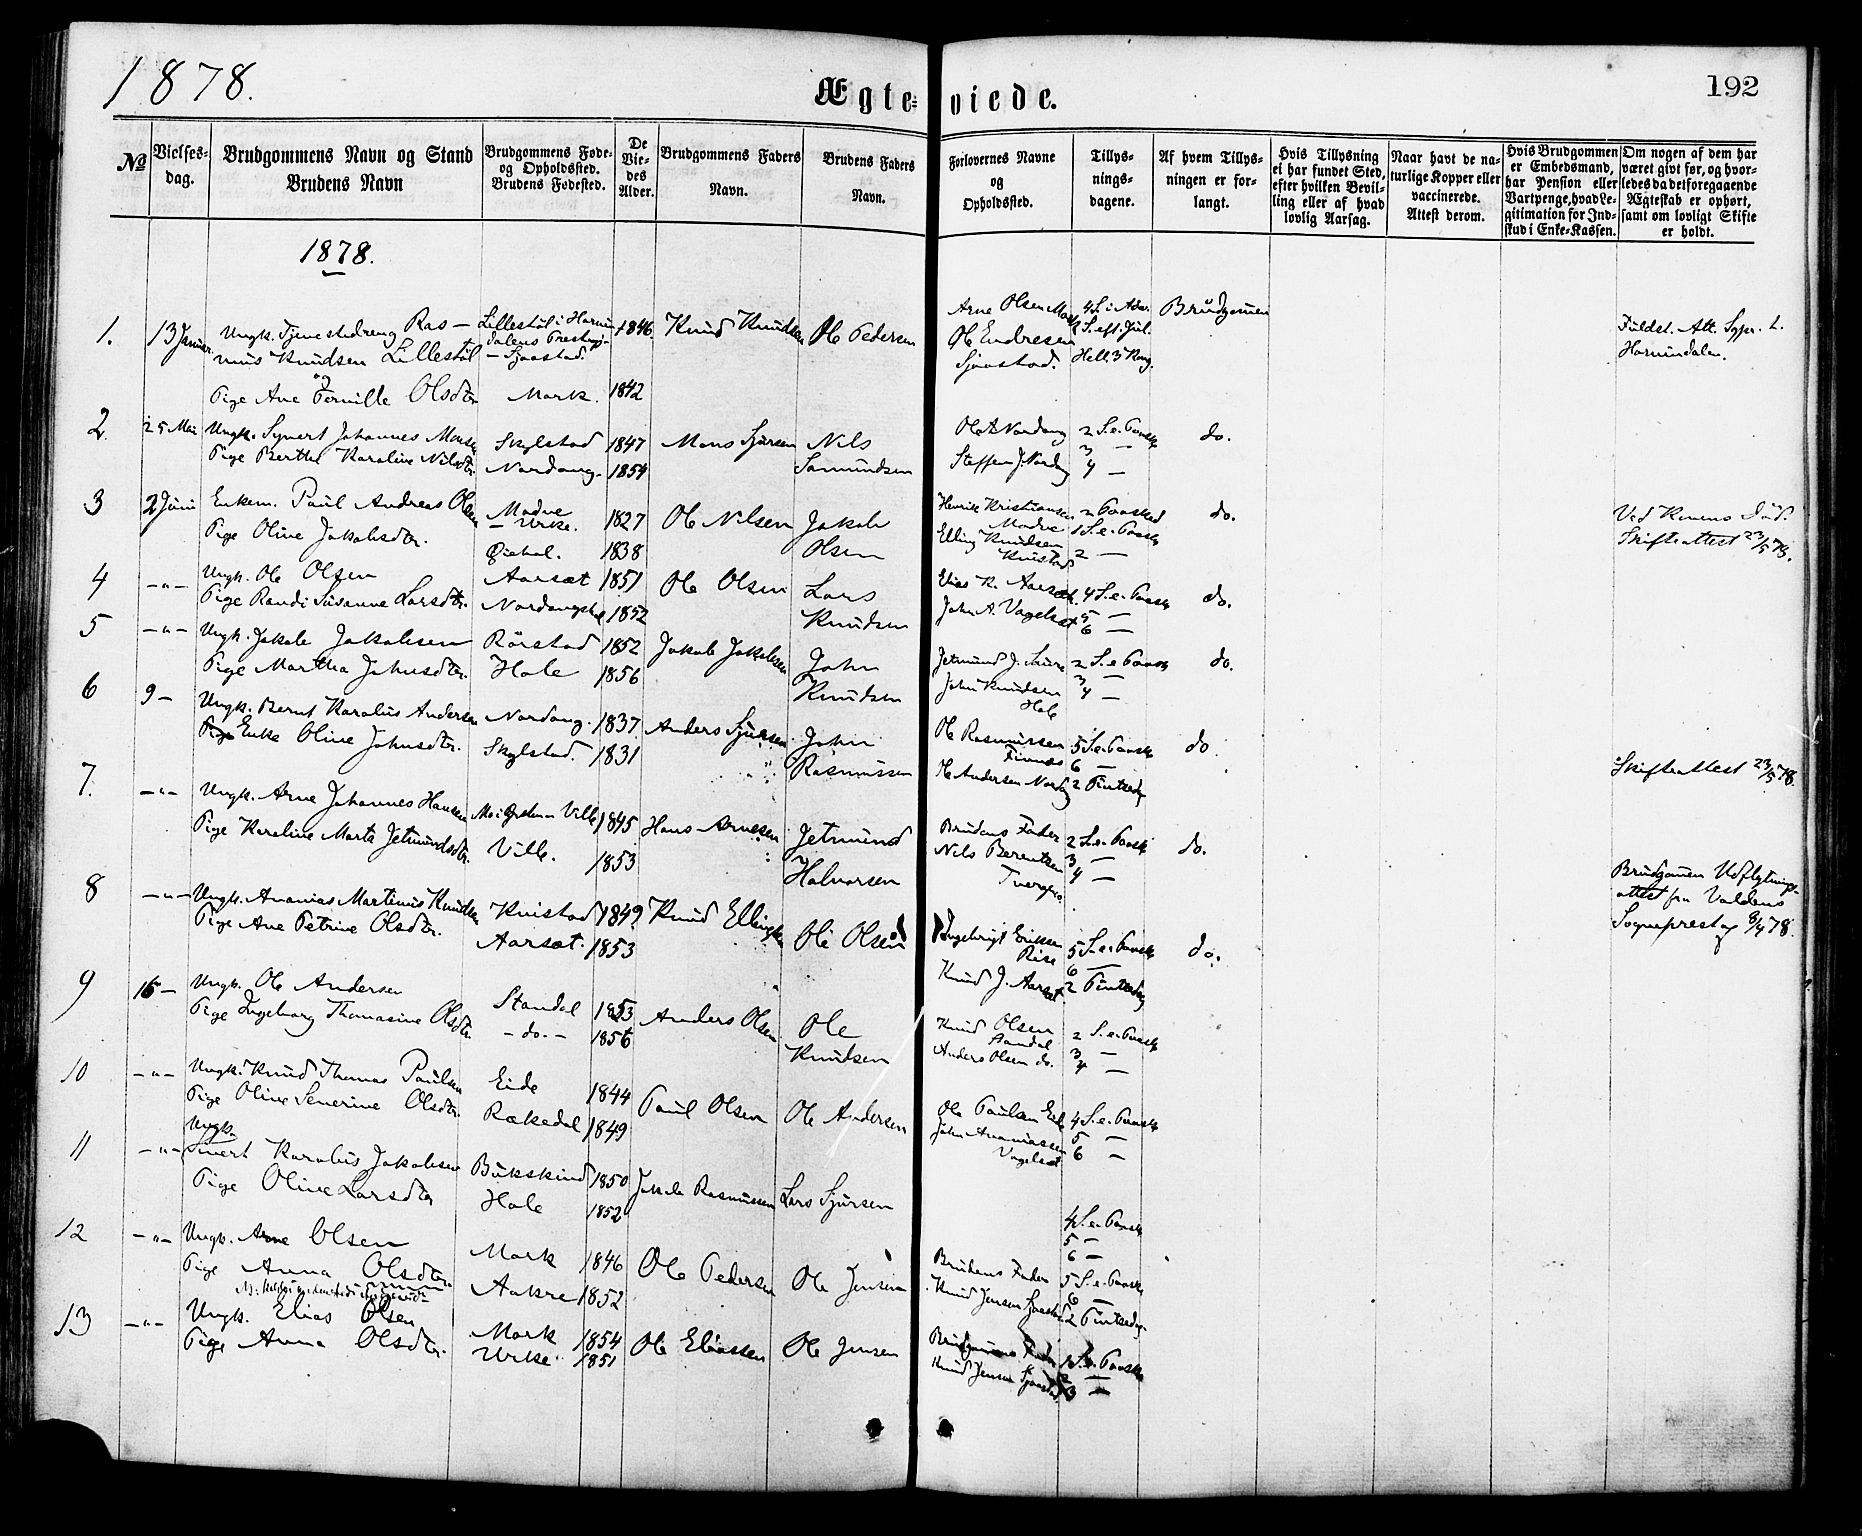 1878.
Ægte- viede.
192
No
Vielses-
dag.
Brudgommens Navn og Stand
Brudens Navn
Brudgommens Føde-
og Opholdssted.
Brudens Fødested.
De
Vie-
des
Alder.
Brudgommens Faders
Navn.
Brudens Faders
Navn.
Forlovernes Navne
og
Opholdssted.
Tillys-
nings-
dagene.
Af hvem Tillys-
ningen er for-
langt.
Hvis Tillysning
ei har fundet Sted,
efter hvilken Bevil-
ling eller af hvad
lovlig Aarsag.
Naar havt de na-
turlige Kopper eller
vaccinerede.
Attest derom.
Hvis Brudgommen
er Embedsmand,
har Pension eller
Vartpenge, hvad Le-
gitimation for Ind-
skud i Enke-Kassen.
Om nogen af dem har
været givt før, og hvor-
ledes da det foregaaende
Ægteskab er ophørt,
samt om lovligt Skifte
er holdt.
1878.
1. 13 Januar Ungk. Tjenestedreng Ras-
mus Knudsen Lillestøl
og
Pige Ane Pernille Olsdtr
Lillestøl i Hornin
dalens Prestegj-
- Sjaastad.
Mork.
1846
1842
Knud Knudsen
Ole Pedersen
Arne Olsen Mork
Ole Endresen
Sjaastad.
4 S. i Adv.
S. eft. Jul.
Hell. 3 Kong.
Brudgomen
Fuldst. Att. Sgpr. t.
Hornindalen.
2. 25 Mai Ungk. Syvert Johannes Monsen
Pige Berthe Karoline Nilsdtr.
Skylstad
Nordang.
1847
1854
Mons Sjursen
Nils
Samundsen
Ole A Nordang
Steffen J. Nordag
2 S. e. Paaske
3 —
4 —
do.
3 2 Juni Enkem. Paul Andreas Olsen
Pige Oline Jakobsdtr.
Madve
- Urke.
Øiehol.
1827
1838
Ole Nilsen
Jakob
Olsen
Henrik Kristiansen
Madve
Elling Knudsen
Knistad
2 Paasked
1 S. e. Paaske
2 —
do.
Ved Konens Død.
Skifteattest 23/5 78.
4 -"- Ungk. Ole Olsen
Pige Randi Susanne Larsdtr.
Aarsæt
1851
1852
Ole Olsen
Lars
Knudsen
Elias K. Aarsæt.
John A. Vagelsæt
4 S. e. Paaske
5 —
6 —
do.
5 -"- Ungk. Jakob Jakobsen
Pige Martha Johnsdtr.
Rörstad
Hole
1852
1856
Jakob Jakobsen
John
Knudsen
Jetmund J. Saure
John Knudsen
Hole
2 S. e. Paaske
3 —
4 —
do.
6 9 - Ungk. Bernt Karolus Andersen
Enke Oline Johnsdtr.
Nordang.
Skylstad.
1837
1831
Anders Sjursen
John
Rasmussen
Ole Rasmussen
Finnes
Ole Andersen Nordg
5 S. e. Paaske
6 —
2 Pintsedag
do.
Skifteattest 23/5 78.
7. -"- Ungk. Arne Johannes Hansen
Pige Karoline Marta Jetmundsdtr.
Mo i Ørsten - Ville
Ville.
1845
1853
Hans Arnesen
Jetmund
Halvorsen
Brudens Fader
Nils Berentsen
2 S. e. Paaske
3 —
4 —
do.
Brudgomen Udflytnings-
attest fra Voldens
Sogneprest 8/4 78.
8 -"- Ungk. Ananias Martinus Knudsen
Pige Ane Petrine Olsdtr.
Knistad
Aarsæt.
1849
1853
Knud Ellingsen
Ole Olsen
Ingebrigt Eriksen
Rise
Knud J. Aarsæt.
5 S. e. Paaske
6 —
2 Pintsedag
do.
9 16 - Ungk. Ole Andersen
Pige Ingeborg Thomasine Olsdtr.
Standal
- do. -
1853
1856
Anders Olsen
Ole
Knudsen
Knud Olsen
Standal
Anders Olsen do.
2 S. e. Paaske
3 —
4 —
10 -"- Ungk. Knud Thomas Paulsen
Pige Oline Severine Olsdtr.
Eide
Rækedal
1844
1849
Paul Olsen
Ole Andersen
Ole Paulsen Eid
John Ananiassen
Vagelsæt
4 S. e. Paaske
5 —
6 —
11 -"- Ungk.
Sivert Karolus Jakobsen
Pige Oline Larsdtr
Bukskind
Hole
1850
1852
Jakob Rasmussen
Lars Sjursen
4 S. e. Paaske
5 —
6 —
12 -"- Ungk. Arne Olsen
Pige Anna Olsdtr.
Mork
Aakre
1846
1852
Ole Pedersen
Ole Jensen
Brudens Fader
Knud Jensen Sjaastad
5 S. e. Paaske
6 —
2 Pintsedag
13 -"- Ungk. Elias Olsen
Pige Anna Olsdtr.
Mork
Urke.
1854
1851
Ole Eliassen
Ole Jensen
Brudgomens Fader
Knud Jensen Sjaastad
1 S. e. Paaske
2 —
3 —